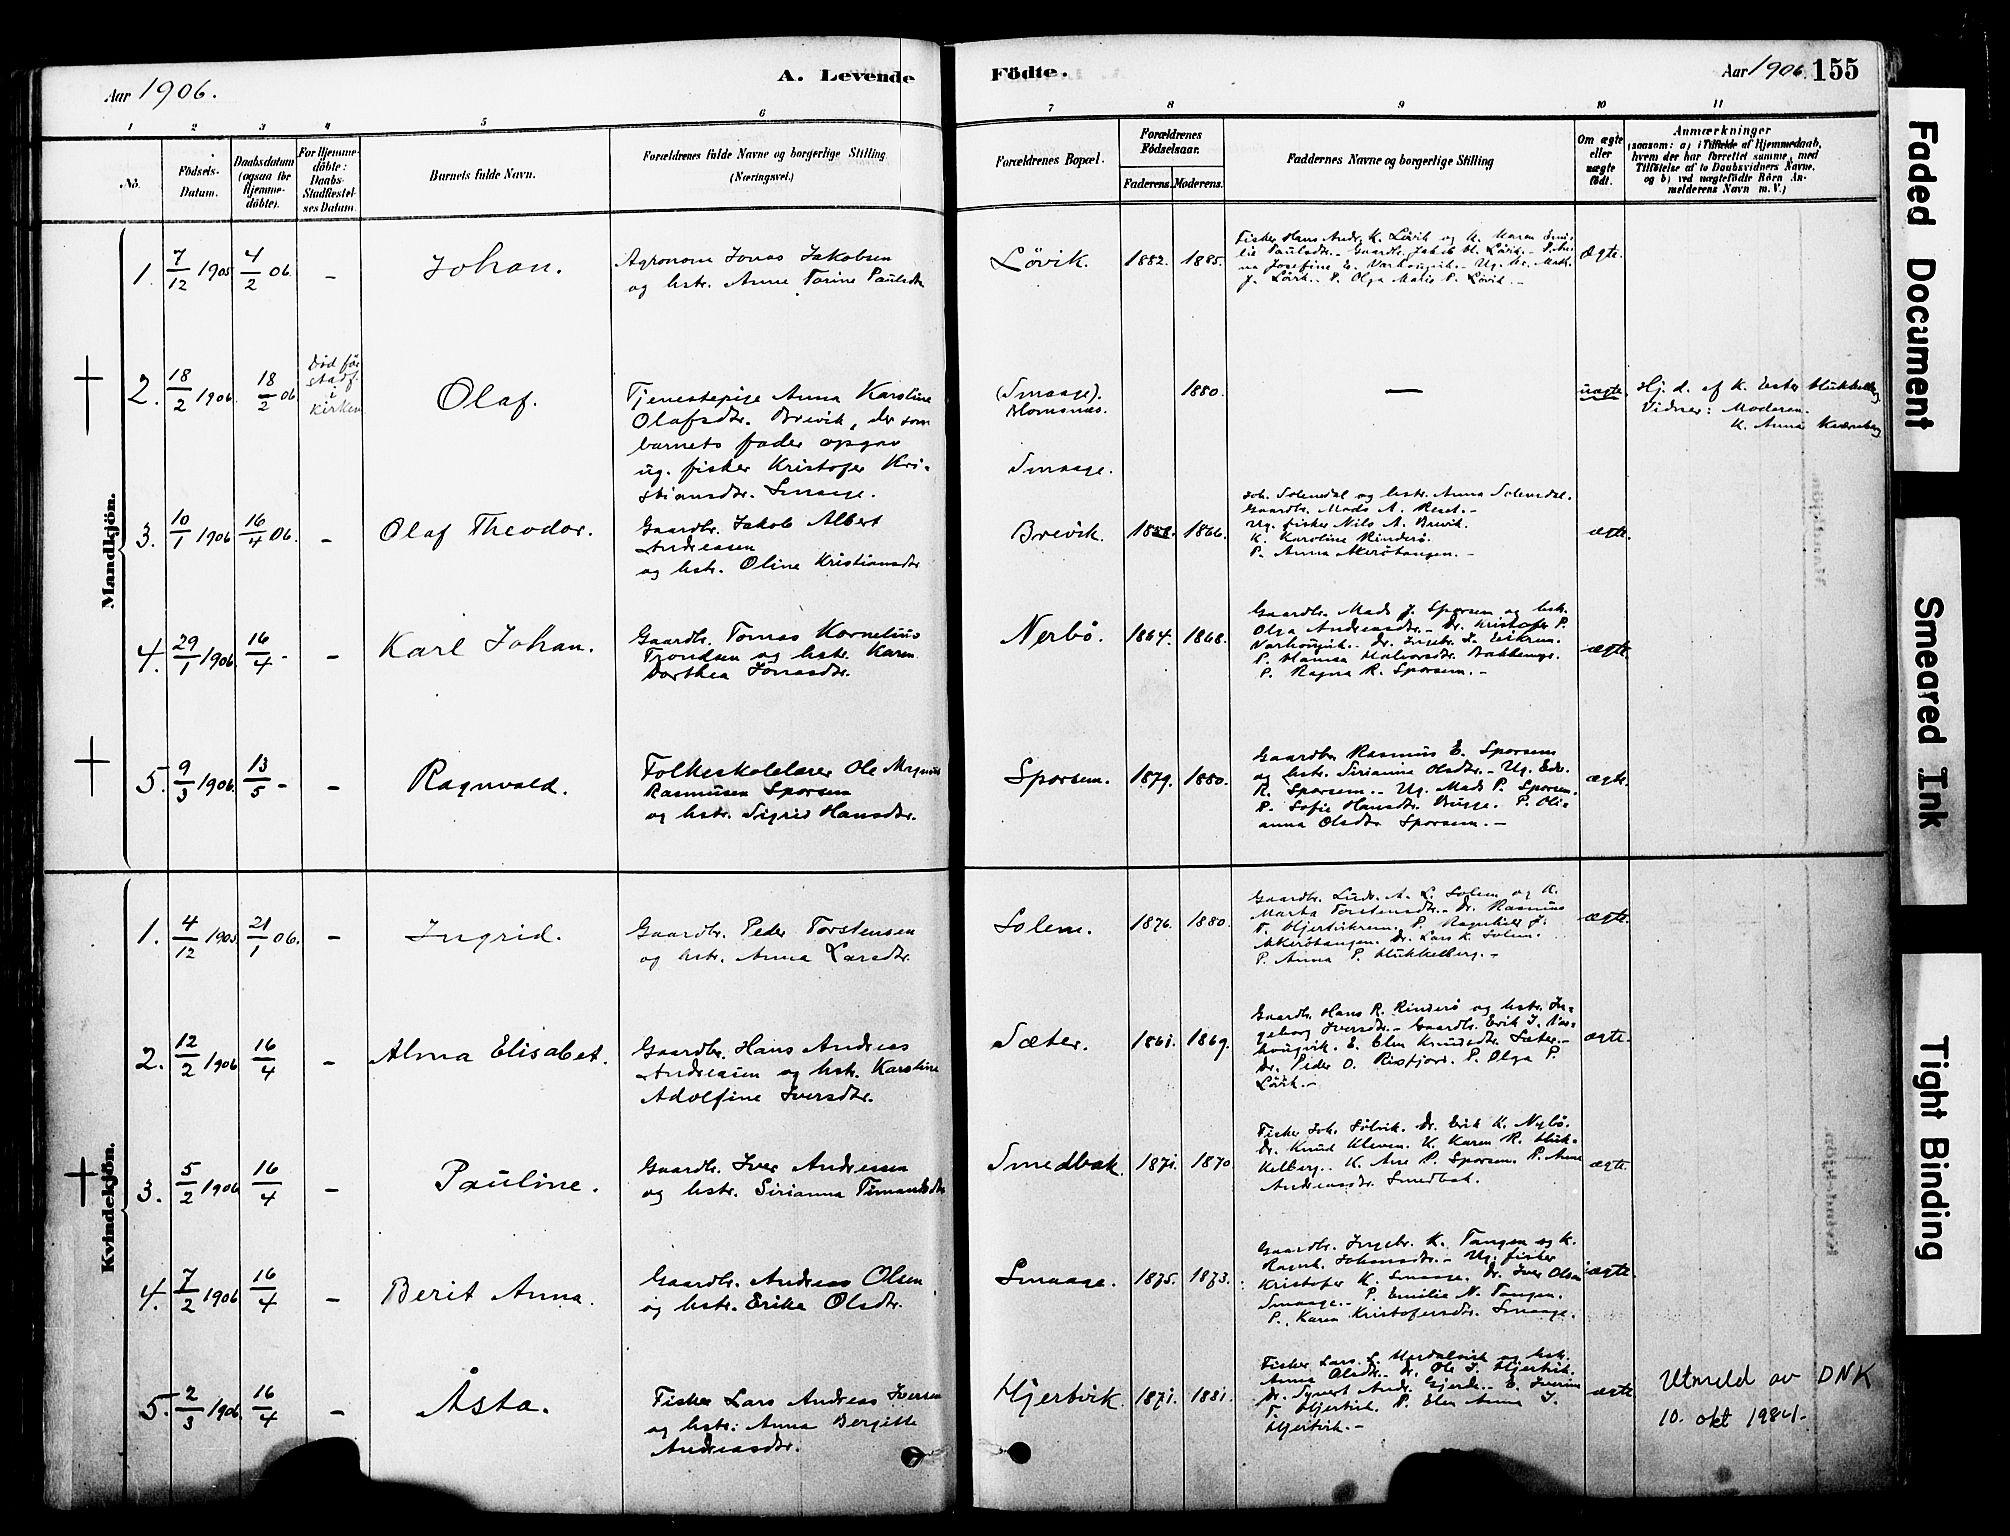 Aar 1906.
A. Levende
Födte.
Aar 1906. 155
1 2 3 4 5 6 7 8 9 10 11
No.
Födsels-
Datum.
Daabsdatum
(ogsaa for
Hjemme-
döbte).
For Hjemme-
döbte:
Daabs-
Stadfæstel-
ses Datum.
Barnets fulde Navn.
Forældrenes fulde Navne og borgerlige Stilling
(Næringsvei.)
Forældrenes Bopæl.
Forældrenes
Födselsaar.
Faderens. Moderens.
Faddernes Navne og borgerlige Stilling
Om ægte
eller
uægte
födt.
Anmærkninger
(saasom: a) i Tilfælde af Hjemmedaab,
hvem der har forrettet samme, med
Tilföielse af to Daabsvidners Navne,
og b) ved uægtefödte Börn An-
melderens Navn m. V.)
Mandkjön.
1. 7/12 1905 4/2 06. - Johan.
Agronom Jonas Jakobsen
og hstr. Anne Torine Paulsdtr
Lövik. 1882. 1885.
Fisker Hans Andr. K. Lövik og K. Maren Emi-
lie Paulsdtr. - Gaardbr. Jakob H. Lövik. -
J. Lövik. - P. Olga Matis P. Lövik. -
Ægte.
2. 18/2 1906. 18/2 06
Död för
stadf.
i
kirken
Olaf.
Tjenestepige Anna Karoline
Olafsdtr. Brevik, der som
barnets fader opgav
ug. fisker Kristofer Kri-
stiansdtr. Smaage.
(Smaage).
Homsnæs.
Smaage.
1880.
—
uægte.
Hj. d. af K. Ester Hukkelberg
Vidner: Moderen.
K. Anna Kværnberg
3. 10/1 1906 16/4 06. - Olaf Theodor.
Gaardbr. Jakob Albert
Andreasen
og hstr. Oline Kristiansdtr
Brevik. 1858. 1866.
Joh. Solemdal og hstr. Anna Solemdal.
Gaardbr. Mads A. Reset. -
Ug. fisker Nils A. Brevik.
K. Karoline Rinderö.
P. Anna Akeröhaugen. -
ægte.
4. 29/1 1906. 16/4 - - Karl Johan.
Gaardbr. Tomas Kornelius
Trondsen og hstr. Karen
Dorthea Jonasdtr.
Nerbö. 1864. 1868.
Gaardbr. Mads J. Sporsem og hstr.
Olga Andreasdtr. - Dr. Kristofer P.
Varhougvik. - Dr. Ingebr. L. Eikrem.
P. Hansa Halvorsdtr. Bakkenge.
P. Ragna R. Sporsem. -
ægte.
5. 9/3 1906. 13/5 - - Ragnvald.
Folkeskolelærer Ole Magnus
Rasmusen Sporsem
og hstr. Sigrid Hansdtr.
Sporsem. 1879. 1880.
Gaardbr. Rasmus E. Sporsem
og hstr. Sirianna Olsdtr. - Ug. Edv.
R. Sporsem. - Ug. Mads P. Sporsem.
P. Sofie Hansdtr. Bugge. P. Oli-
anna Olsdtr Sporsem. -
ægte.
Kvindekjön.
1. 4/12 1905 21/1 06. - Ingrid.
Gaardbr. Peder Torstensen
og hstr. Anna Larsdtr.
Solem. 1876. 1880.
Gaardbr. Ludv. A. L. Solem og K.
Marta Torstensdtr. - Dr. Rasmus
T. Hjertvikrem. P. Ragnhild J.
Akeröhaugen. Dr. Lars K. Solem.
P. Anna P. Hukkelberg. -
ægte.
2. 12/2 1906 16/4 - Alma Elisabet.
Gaardbr. Hans Andreas
Andreasen og hstr. Karoline
Adolfine Iversdtr.
Sæter. 1861. 1869.
Gaardbr. Hans R. Rinderö og hstr. In-
geborg Iversdtr. - Gaardbr. Erik I. Var-
hougvik. E. Elen Knudsdtr. Sæter. -
Dr. Peder O. Risfjord. P. Olga P.
Lövik. -
ægte.
3. 5/2 1906 16/4 - Pauline.
Gaardbr. Iver Andreasen
og hstr. Sirianna Timandsdtr
Smedbak. 1871. 1870.
Fisker Joh. Sölvik. Dr. Erik K. Nybö.
Dr. Knud Kleven. K. Karen R. Huk-
kelberg. - K. Ane P. Sporsem. P. Anne
Andreasdtr Smedbak.
ægte.
4. 7/2 1906 16/4 - Berit Anna.
Gaardbr. Andreas Olsen
og hstr. Erika Olsdtr.
Smaage. 1875. 1873.
Gaardbr. Ingebr. K. Tangen og K.
Ragnh. Johansdtr. - Ug. fisker
Kristofer K. Smaage. Dr. Iver Olsen
Smaage. - P. Emilie N. Tangen.
P. Karen Kristofersdtr. Smaage.
ægte.
5. 2/3 1906. 16/4 - Åsta.
Fisker Lars Andreas Iversen
og hstr: Anna Bergitte
Andreasdtr.
Hjertvik. 1871. 1881.
Fisker Lars L. Mordalsvik og hstr.
Anna Olsdtr. - Dr. Ole I. Hjertvik.
Dr. Synert Andr. Gjerde. - E. Iverine
T. Hjertvik. P. Elen Anna I.
Hjertvik. -
ægte
Utmeld av DNK
10. okt 1984.
Faded Document
Smeared Ink
Tight Binding